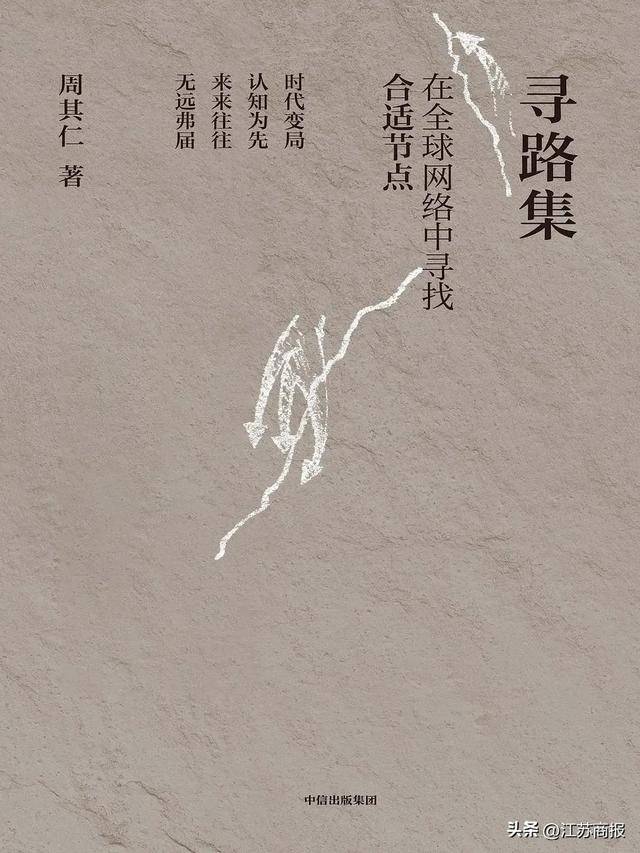 寻路集
在全球网络中寻找
合适节点
时代变局
认知为先
来来往往
无远弗届
周其仁 著
中信出版集团
头条 @江苏商报